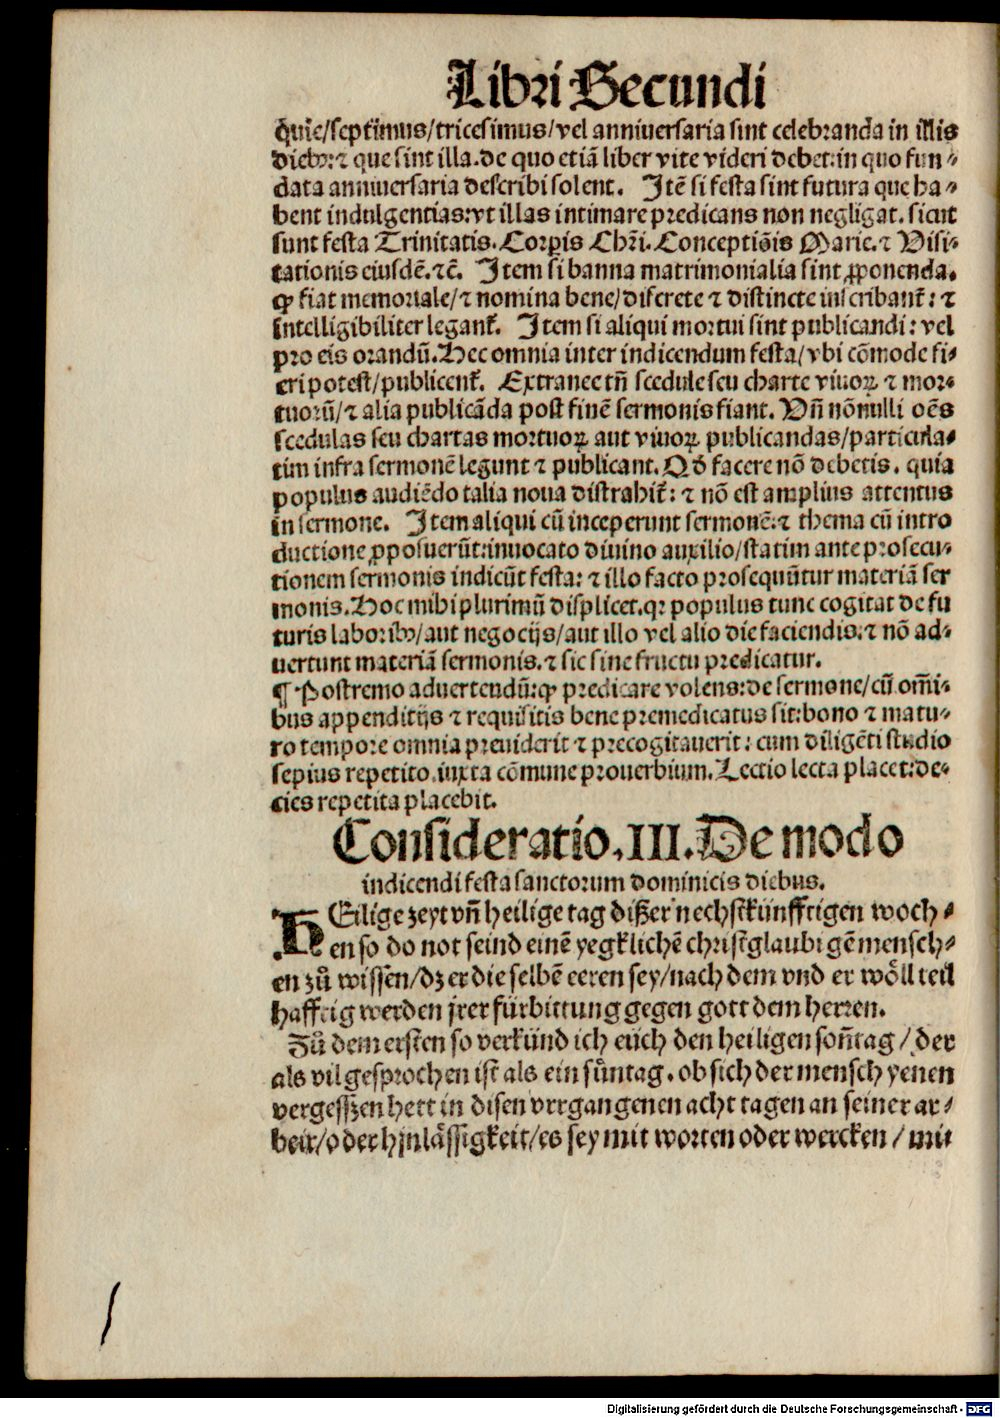 Libri Secundi
q̃uie/septimus/tricesimus/vel anniuersaria sint celebranda in illis
diebꝰ:⁊ que sint illa.de quo etiã liber vite videri debet:in quo fun⸗
data anniuersaria describi solent. Itẽ si festa sint futura que ha⸗
bent indulgentias:vt illas intimare predicans non negligat. sicut
sunt festa Trinitatis. Corꝑis Chr̃i. Conceptiõis Marie.⁊ Visi⸗
tationis eiusdẽ.⁊c̃. Item si banna matrimonialia sint ꝓponenda.
ꝙ fiat memoriale/⁊ nomina bene/discrete ⁊ distincte inscribant᷑: ⁊
intelligibiliter legant᷑. Item si aliqui mortui sint publicandi: vel
pro eis orandũ. Hec omnia inter indicendum festa/vbi cõmode fi⸗
eri potest/publicent᷑. Extranee tñ scedule seu charte viuoꝝ ⁊ mor⸗
tuorũ/⁊ alia publicãda post finẽ sermonis fiant. Vñ nõnulli oẽs
scedulas seu chartas mortuoꝝ aut viuoꝝ publicandas/particula⸗
tim infra sermonẽ legunt ⁊ publicant. Qð facere nõ debetis. quia
populus audiẽdo talia noua distrahit᷑: ⁊ nõ est amplius attentus
in sermone. Item aliqui cũ inceperunt sermonẽ:⁊ thema cũ intro
ductione ꝓposuerũt:inuocato diuino auxilio/statim ante prosecu⸗
tionem sermonis indicũt festa: ⁊ illo facto prosequũtur materiã ser
monis. Hoc mihi plurimũ displicet.qꝛ populus tunc cogitat de fu
turis laboribꝰ/aut negocijs/aut illo vel alio die faciendis.⁊ nõ ad⸗
uertunt materiã sermonis.⁊ sic sine fructu predicatur.
¶ Postremo aduertendũ:ꝙ predicare volens:de sermone/cũ om̃i⸗
bus appenditijs ⁊ requisitis bene premedicatus sit:bono ⁊ matu⸗
ro tempore omnia preuiderit ⁊ precogitauerit: cum diligẽti studio
sepius repetito.iuxta cõmune prouerbium. Lectio lecta placet:de⸗
cies repetita placebit.
Consideratio.III. De modo
indicendi festa sanctorum dominicis diebus.
HEilige zeyt vñ heilige tag dißer nechstkünfftigen woch⸗
en so do not seind einẽ yegklichẽ christglaubigẽ mensch⸗
en zů wissen/dz er die selbẽ eeren sey/nach dem vnd er wöll teil
hafftig werden jrer fürbittung gegen gott dem herren.
Zů dem ersten so verkünd ich eüch den heiligen soñtag/der
als vil gesprochen ist als ein sůntag. ob sich der mensch yenen
vergessen hett in disen vergangenen acht tagen an seiner ar⸗
beit/oder hinlässigkeit/es sey mit worten oder wercken/mit
Digitalisierung gefördert durch die Deutsche Forschungsgemeinschaft - DFG